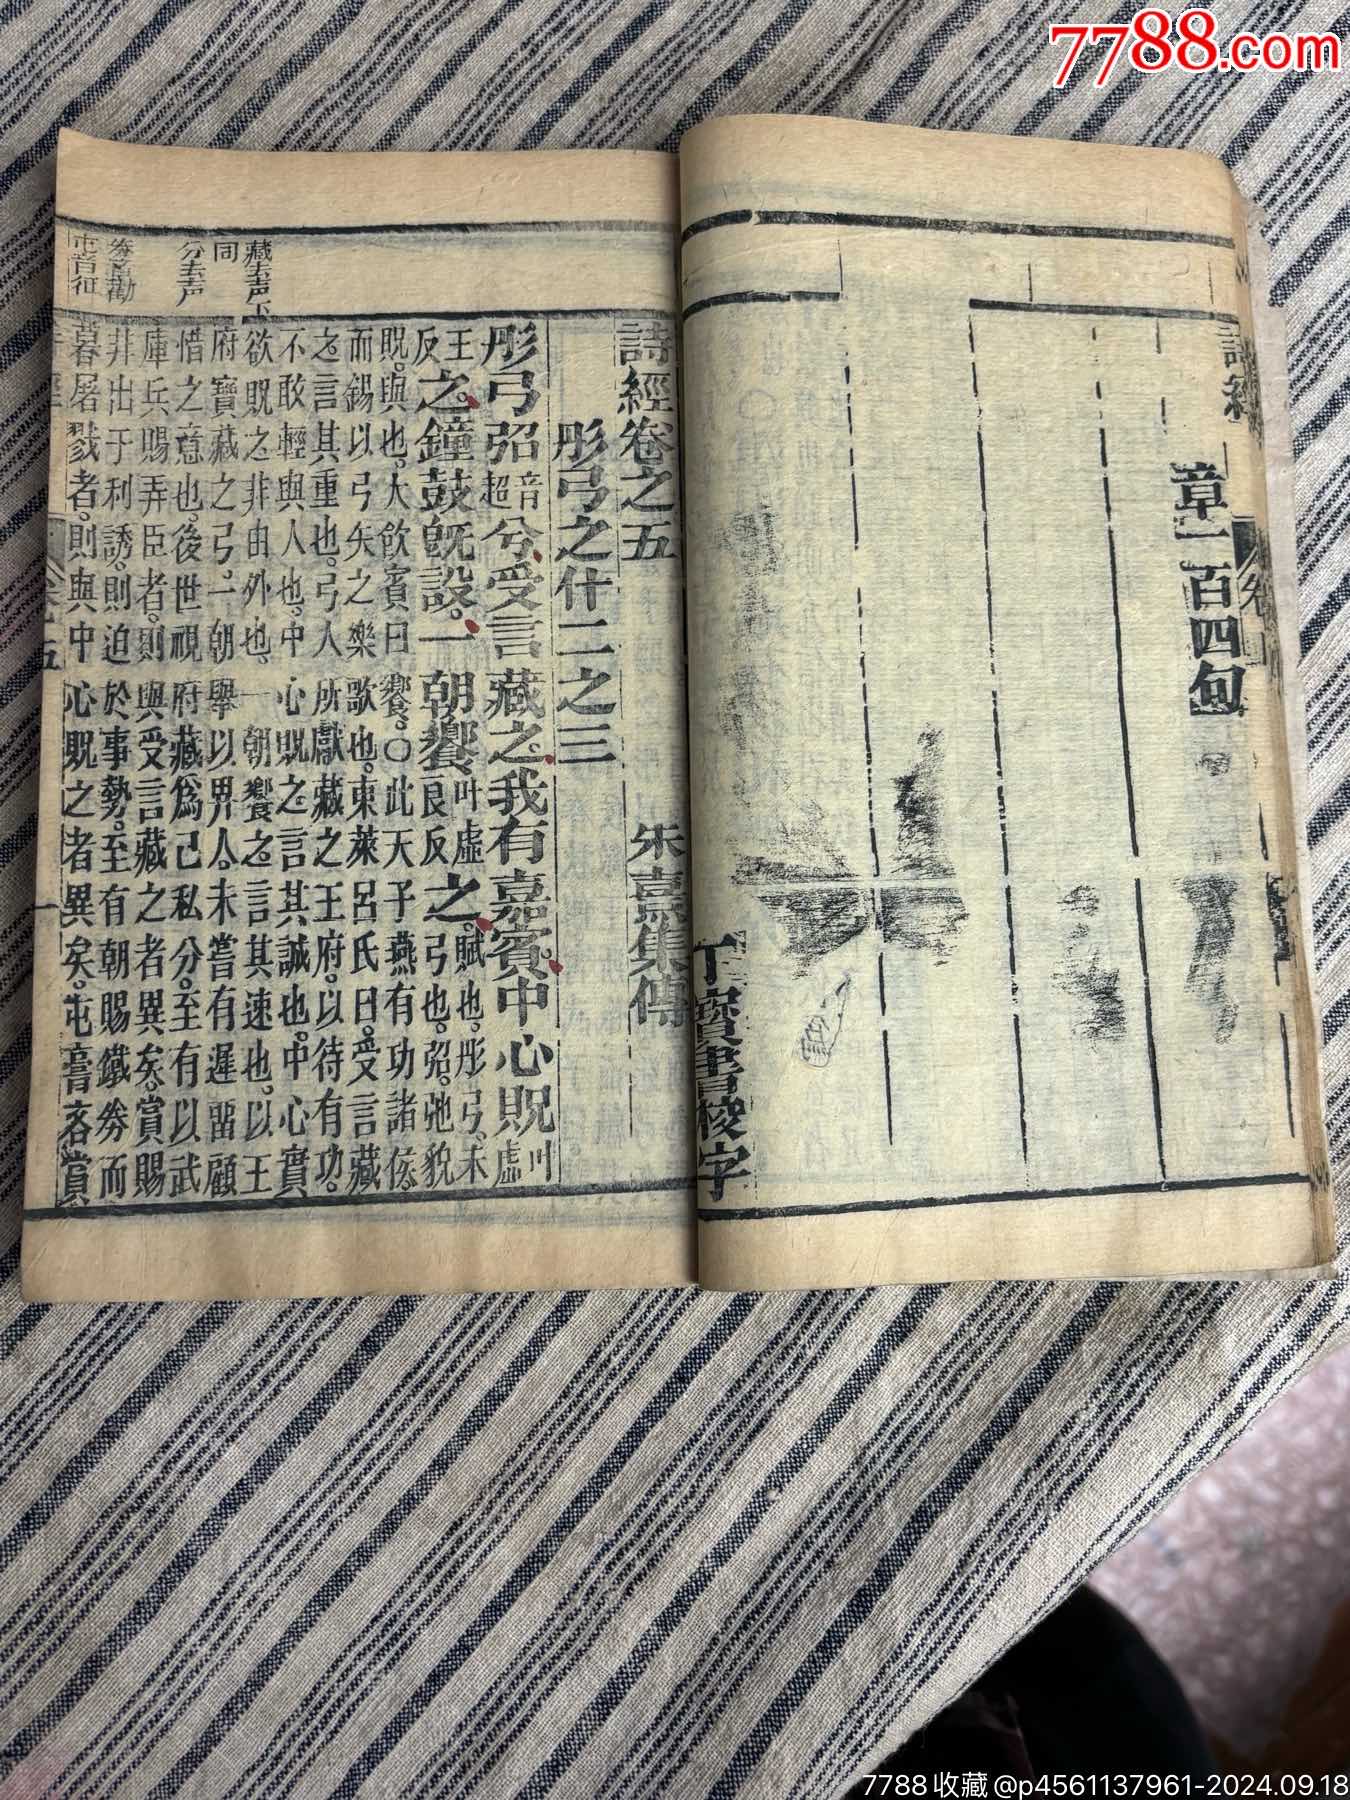 7788.com
詩經
卷四
章一百四句
丁寶書校字
詩經卷之五　朱熹集傳
彤弓之什二之三
彤弓弨音超兮。受言藏之。我有嘉賓。中心貺叶虛
王反之。鐘鼓旣設。一朝饗叶虛良反之。賦也。彤弓。朱弓也。弨。弛貌
貺。與也。大飲賓曰饗。○此天子燕有功諸侯。
而錫以弓矢之樂歌也。東萊呂氏曰。受言藏
之。言其重也。弓人所獻。藏之王府。以待有功。
不敢輕與人也。中心貺之。言其誠也。中心實
欲貺之。非由外也。一朝饗之。言其速也。以王
府寶藏之弓。一朝舉以畀人。未嘗有遲留顧
惜之意也。後世視府藏爲己私分。至有以武
庫兵賜弄臣者。則與受言藏之者異矣。賞賜
非出于利誘。則迫於事勢。至有朝賜鐵券而
暮屠戮者。則與中心貺之者異矣。屯膏吝賞
藏去声下
同
分去声
券音勸
屯音
卷五
一
7788收藏@p4561137961-2024.09.18